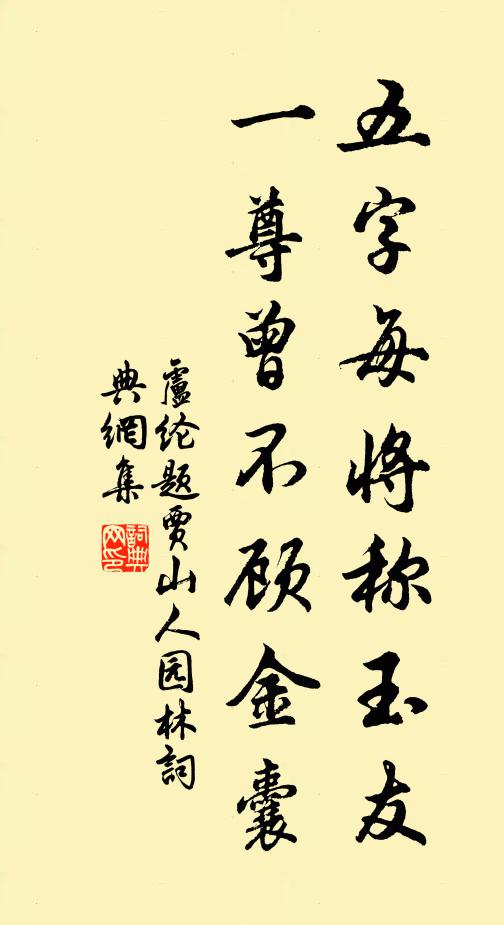 五字每将称玉友
一尊曾不顾金囊
盧纶题贾山人园林詞
典網集
詞典网印